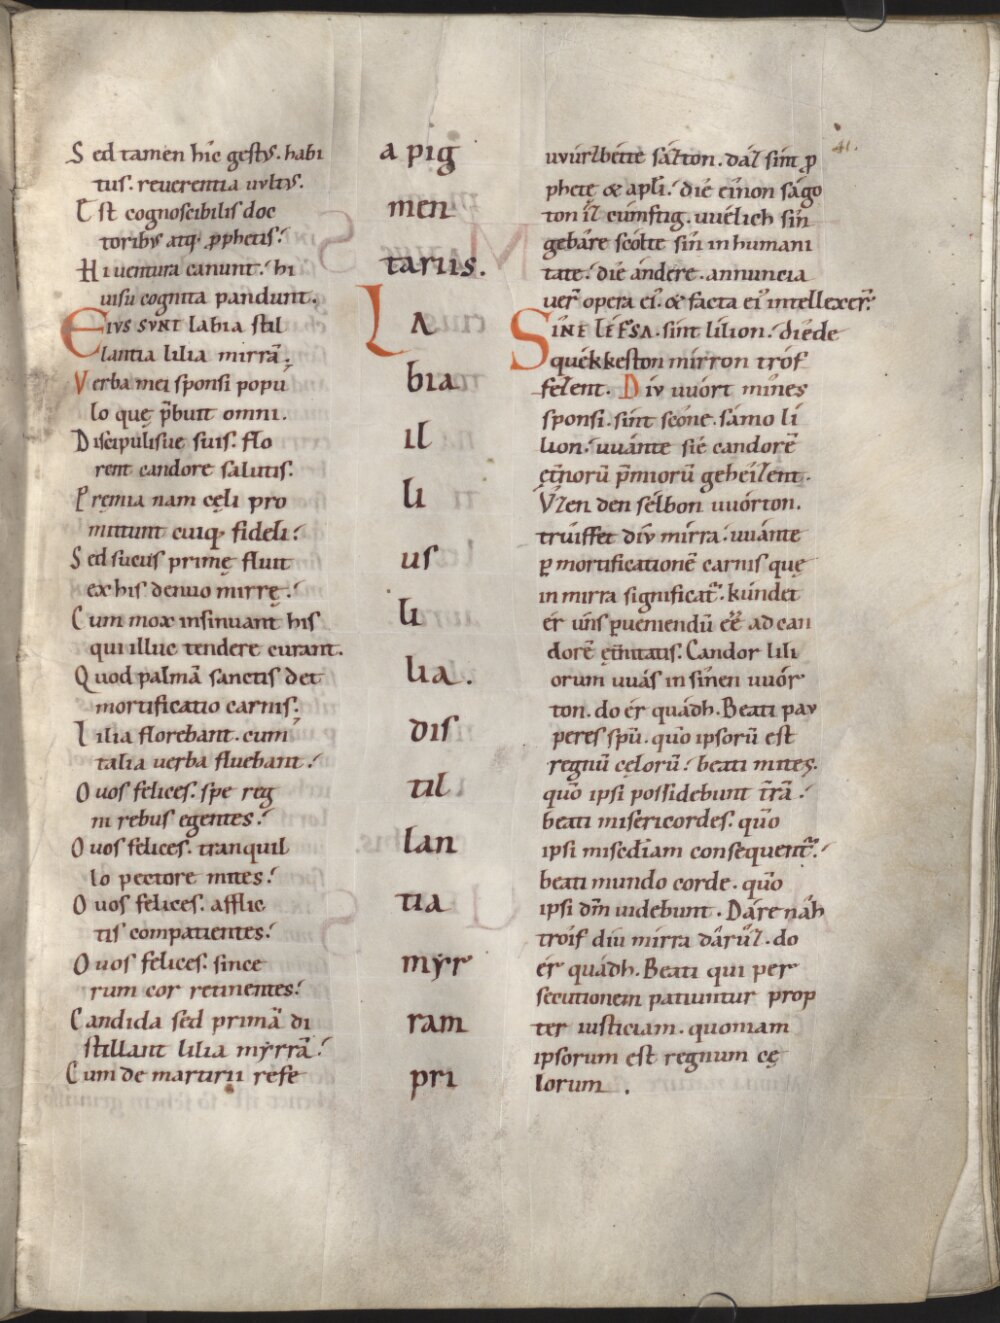 41.
Sed tamen hic gestꝰ. habi
tus. reuerentia uultꝰ.
Est cognoscibilis doc
toribꝰ atq; ꝓphetis.
Hi uentura canunt. hi
uisu cognita pandunt.
Eius sunt labia stil
lantia lilia mirrā.
Verba mei sponsi popu
lo quę p̄bunt omni.
Discipulisue suis. flo
rent candore salutis.
Pręmia nam cęli pro
mittunt cuiq; fideli.
Sed sucus primę fluit
ex his denuo mirrę.
Cum mox insinuant his
qui illuc tendere curant.
Quod palmā sanctis det
mortificatio carnis.
Lilia florebant. cum
talia uerba fluebant.
O uos felices. spe reg
ni rebus egentes.
O uos felices. tranquil
lo pectore mites.
O uos felices. afflic
tis compatientes.
O uos felices. since
rum cor retinentes.
Candida sed primā di
stillant lilia mÿrrā.
Cum de martirii refe
a pig
men
tariis.
La
bia
il
li
us
li
lia.
dis
til
lan
tia
mẏr
ram
pri
uvúrlbette sálton. dáz sint ꝓ
phetę & apłi. dié eínon ságo
ton íz cúmftig. uuélich sín
gebáre scólte sín in humani
tate. dié ándere. annuncia
uer̄ opera eī. & facta eī intellexer̄.
Síne léfsa. sint lílion. diéde
quékkeston mírron tróf
fezent. Díu uuórt mínes
sponsi. sínt scóne. sámo lí
lion. uuánte sié candorē
ęt̄norū p̄miorū gehéizent.
Vzen den sélbon uuórton.
trúiffet díu mirra. uuánte
ꝑ mortificationē carnis quę
in mirra significat̄. kúndet
ér úns ꝑueniendū ēē ad can
dorē ęt̄nitatis. Candor lili
orum uuás in sínen uuór
ton. do ér quádh. Beati pau
peres spū. qūo ipsorū est
regnū cęlorū. beati mites.
qūo ipsi possidebunt t̄rā.
beati misericordes. qūo
ipsi misc̄diam consequent̄.
beati mundo corde. qūo
ipsi dm̄ uidebunt. Dáre náh
tróif diu mirra dárúz. do
ér quádh. Beati qui per
secutionem patiuntur prop
ter iusticiam. quoniam
ipsorum est regnum cę
lorum.